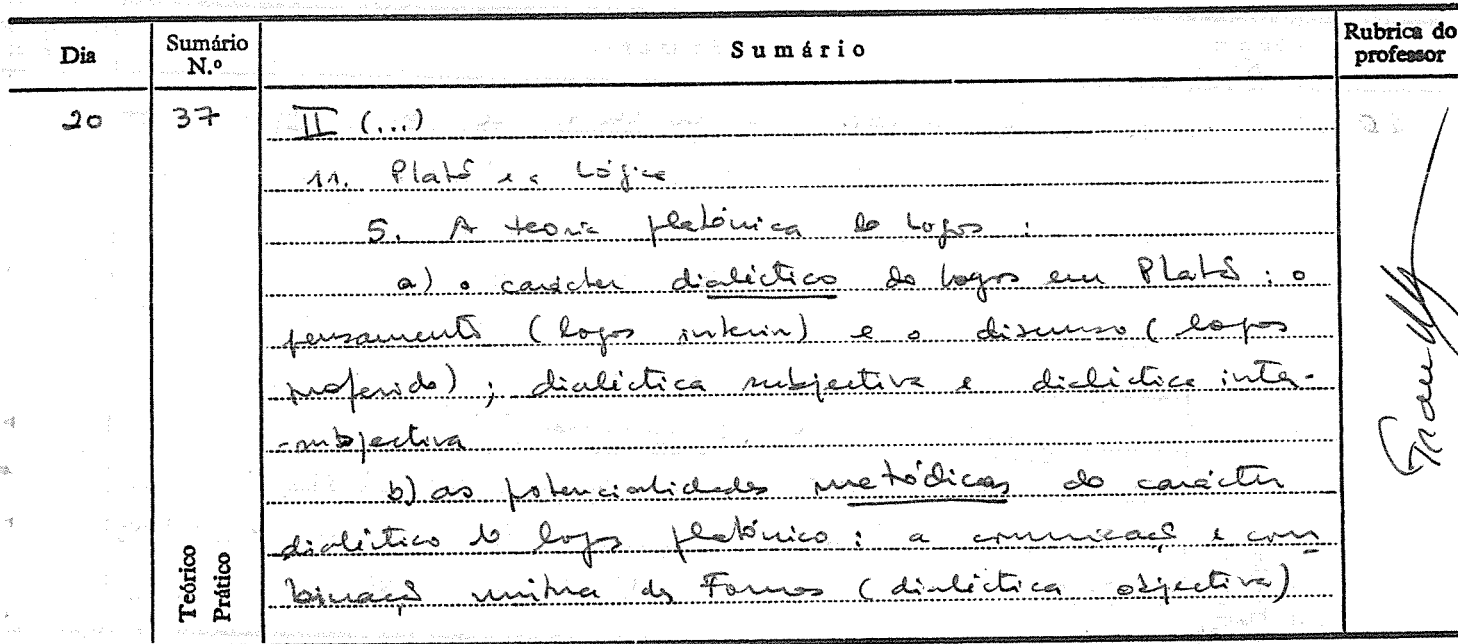 Dia Sumário N.º Sumário Rubrica do professor
20 37 II (...)
11. Platão e a Lógica
5. A teoria platónica do Logos :
a) o carácter dialéctico do logos em Platão : o
pensamento (logos interior) e o discurso (logos
proferido) ; dialéctica subjectiva e dialéctica inter-
-subjectiva
b) as potencialidades metódicas do carácter
dialéctico do logos platónico : a comunicação e com
binação mútua das Formas (dialéctica objectiva)
Teórico
Prático